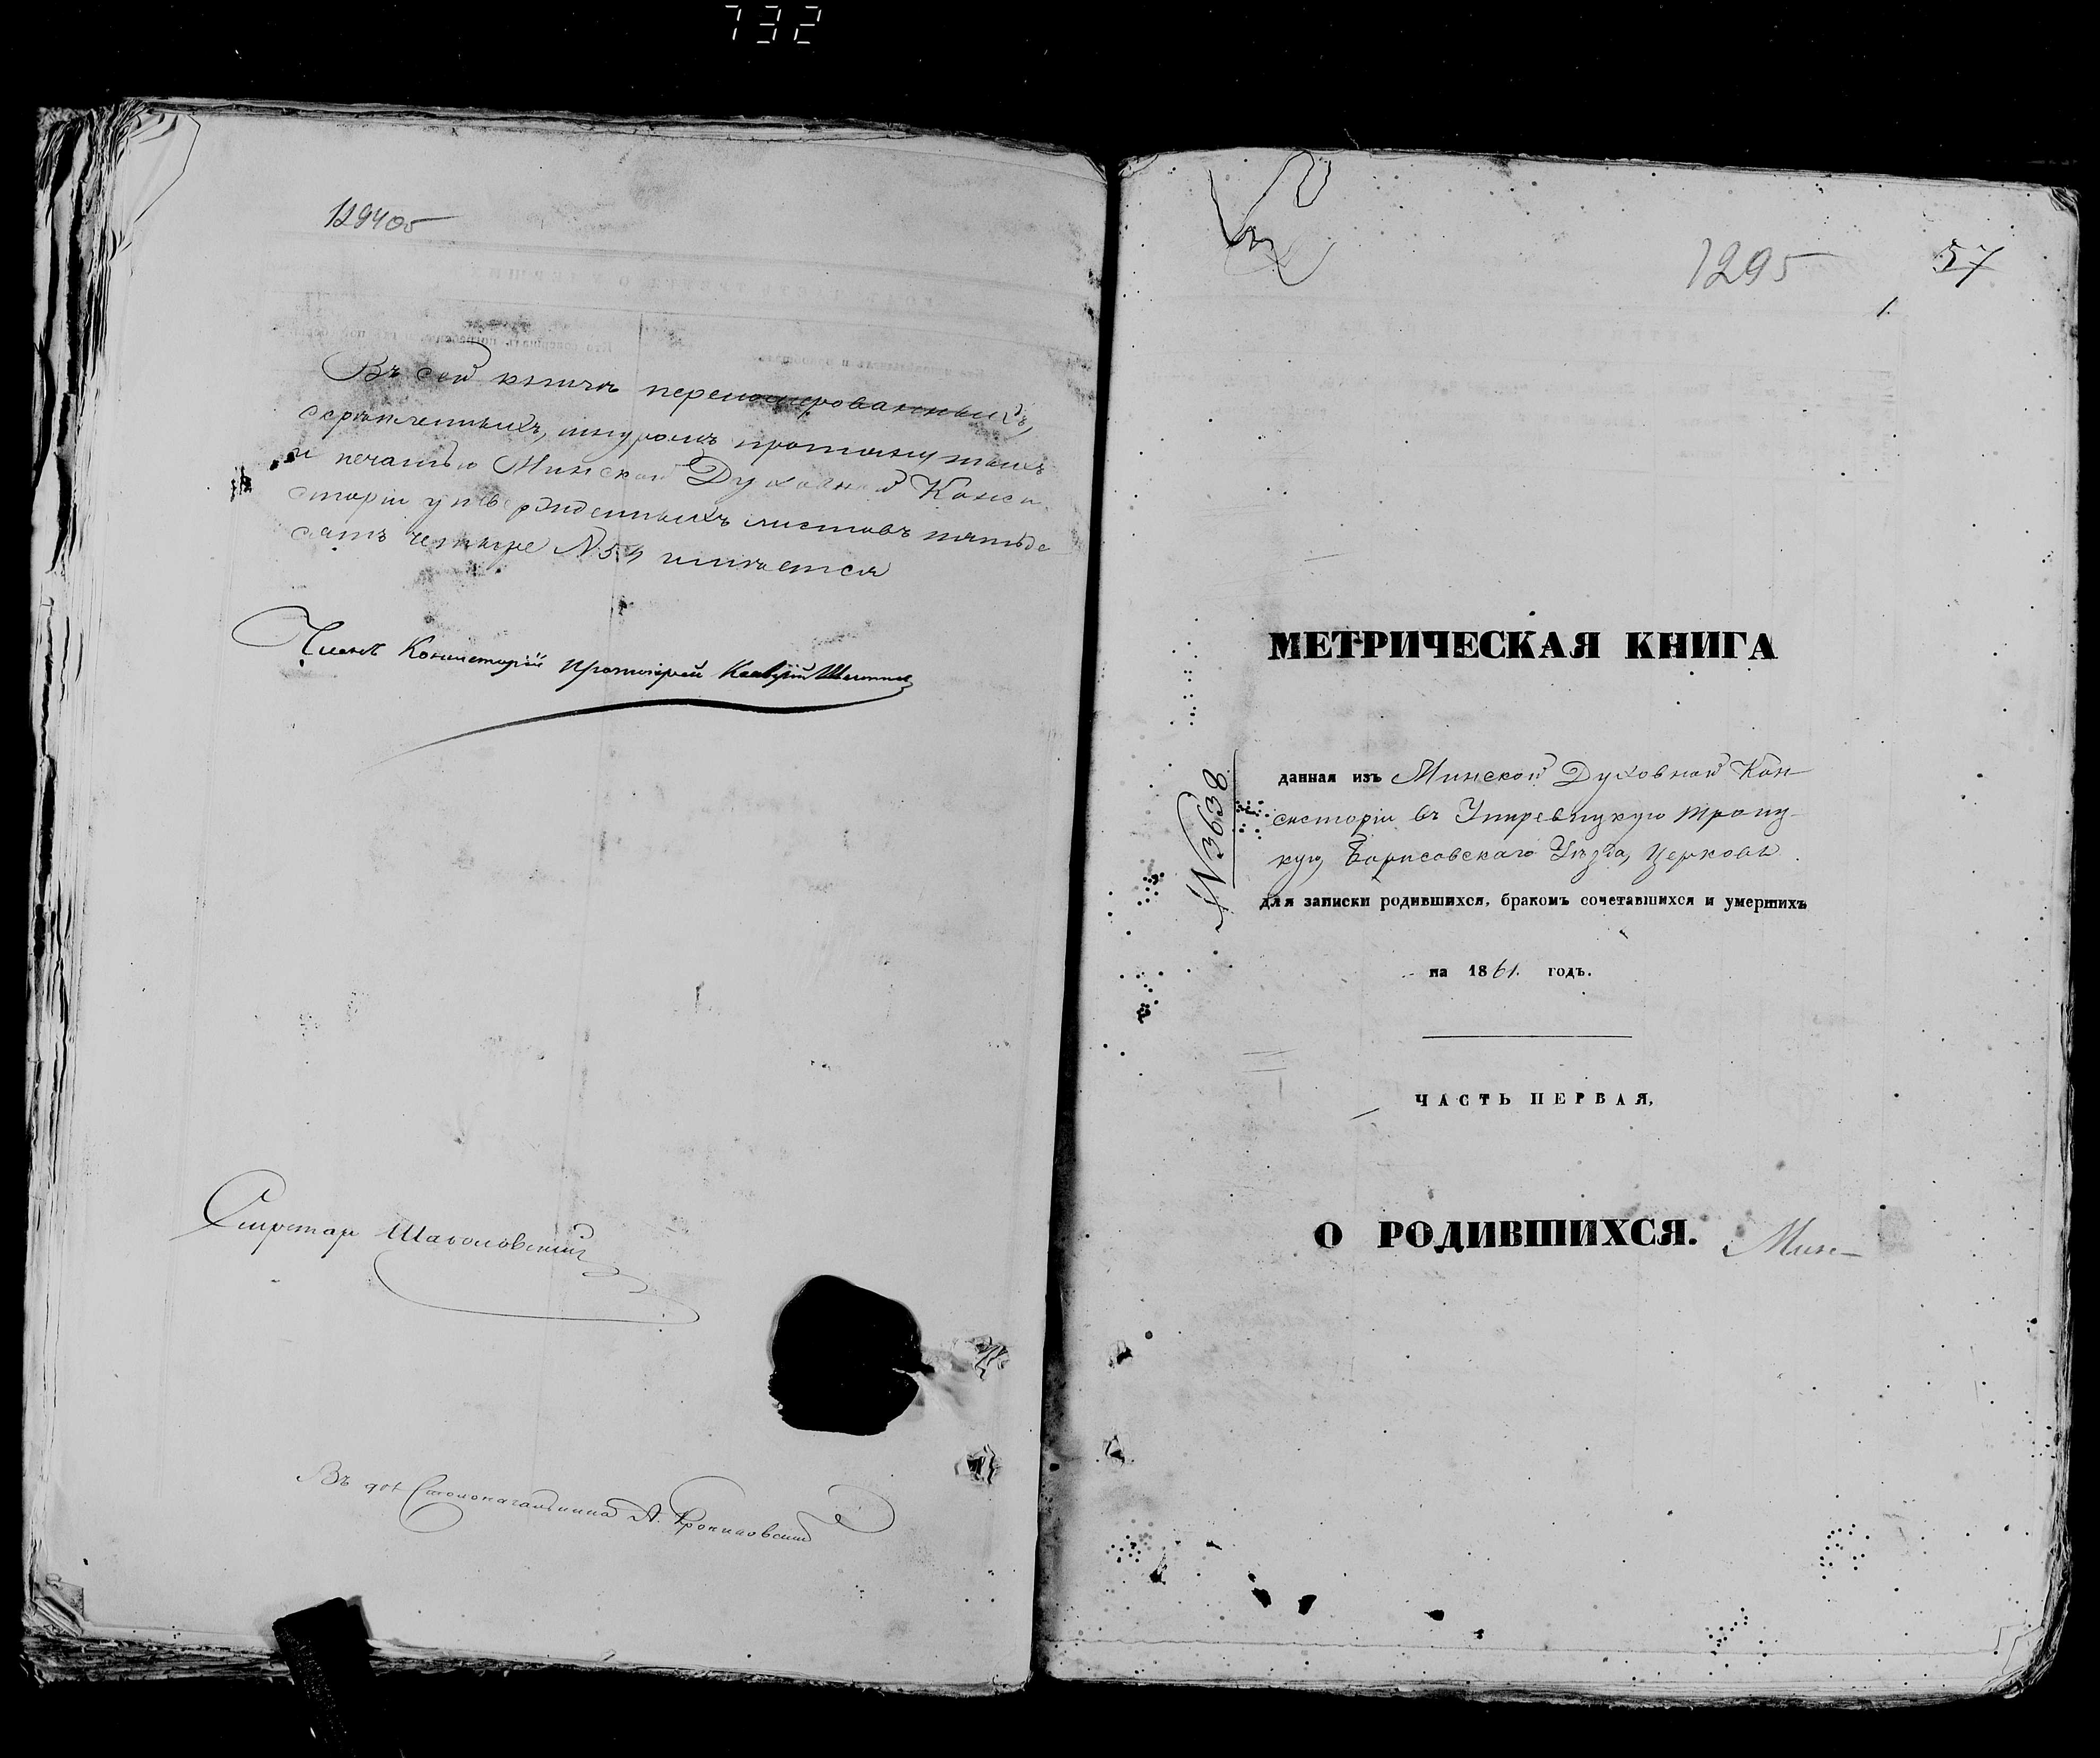 732
1294об
Въ сей книгѣ перенумерованныхъ,
скрѣпленныхъ, шнуромъ протянутыхъ
и печатью Минской Духовной Конси
сторіи утвержденныхъ листовъ пятьде
сятъ четыре № 54 имѣется
Членъ Консисторіи Протоіерей
Секретарь
Въ дол Столоначальника А.
1295
57
1.
МЕТРИЧЕСКАЯ КНИГА
№ 3638
данная изъ Минской Духовной Кон-
систоріи въ Упиревицкую Троиц-
кую, Борисовскаго Уѣзда, Церковь
для записки родившихся, бракомъ сочетавшихся и умершихъ
на 1861. годъ.
ЧАСТЬ ПЕРВАЯ,
О РОДИВШИХСЯ.
Мин-